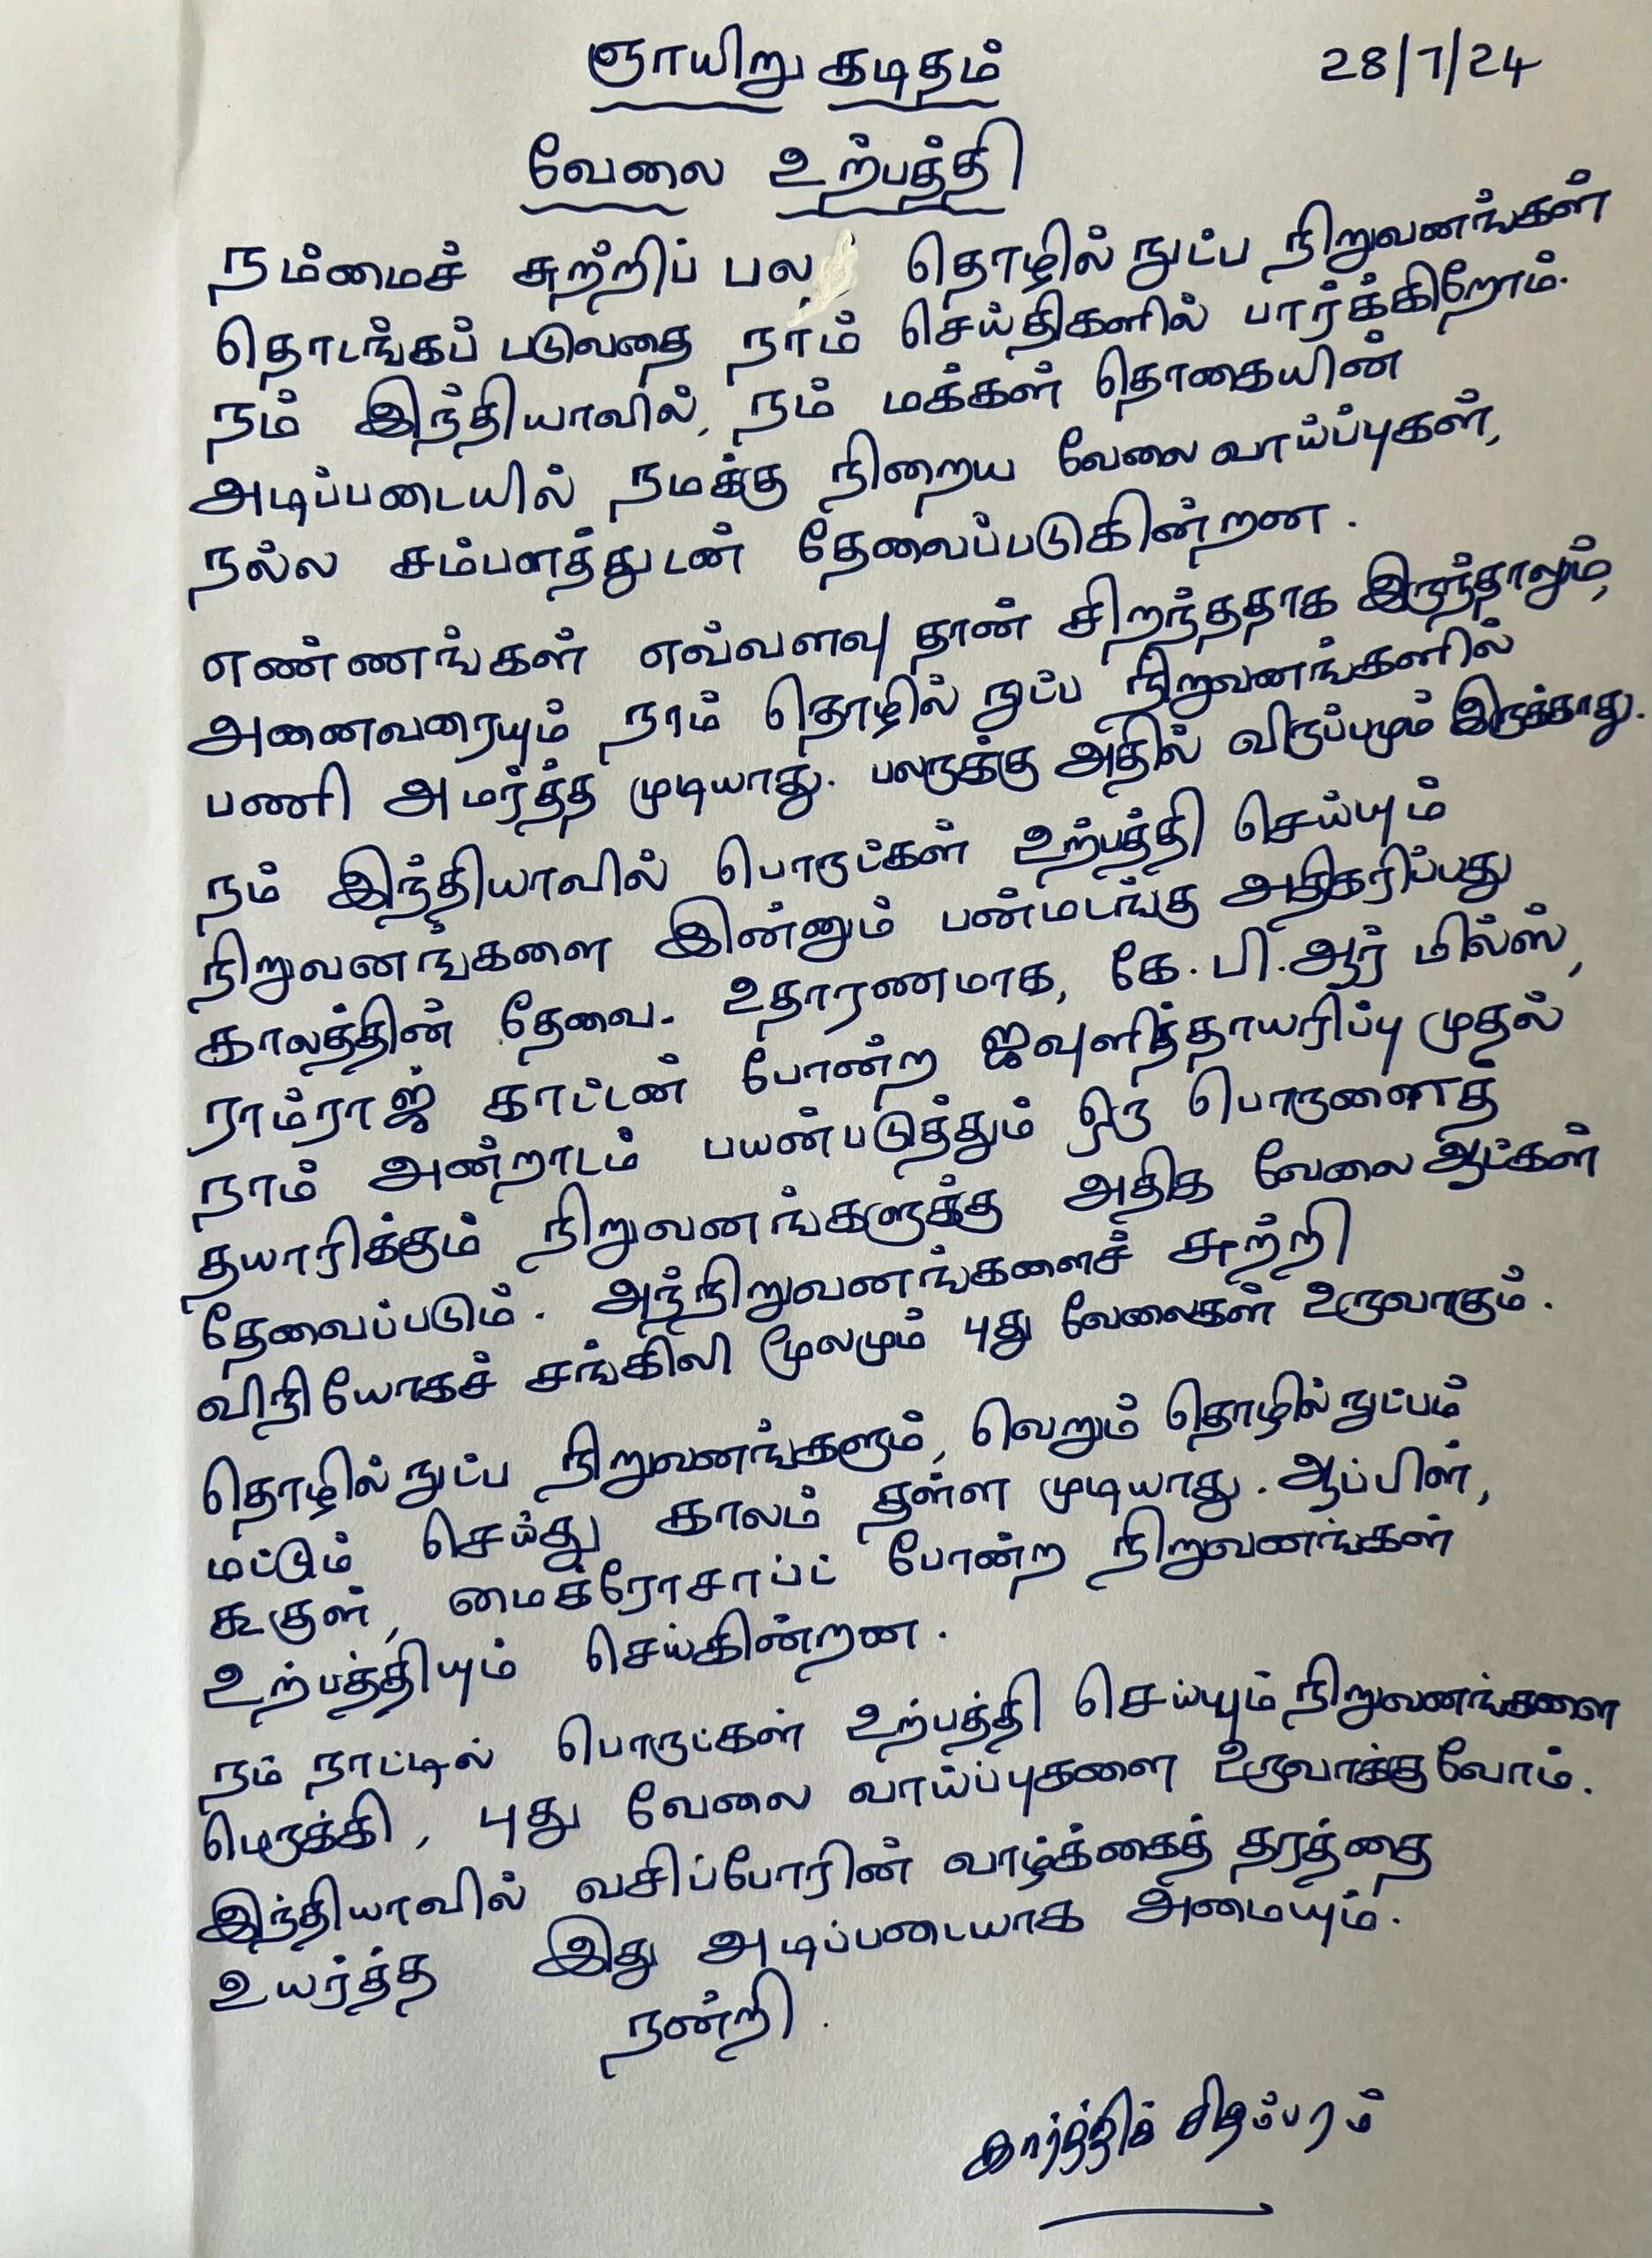 ஞாயிறு கடிதம்
28/7/24
வேலை உற்பத்தி
நம்மைச் சுற்றிப் பல தொழில் நுட்ப நிறுவனங்கள்
தொடங்கப் படுவதை நாம் செய்திகளில் பார்க்கிறோம்.
நம் இந்தியாவில், நம் மக்கள் தொகையின்
அடிப்படையில் நமக்கு நிறைய வேலை வாய்ப்புகள்,
நல்ல சம்பளத்துடன் தேவைப்படுகின்றன.
எண்ணங்கள் எவ்வளவு தான் சிறந்ததாக இருந்தாலும்,
அனைவரையும் நாம் தொழில் நுட்ப நிறுவனங்களில்
பணி அமர்த்த முடியாது. பலருக்கு அதில் விருப்பமும் இருக்காது.
நம் இந்தியாவில் பொருட்கள் உற்பத்தி செய்யும்
நிறுவனங்களை இன்னும் பன்மடங்கு அதிகரிப்பது
காலத்தின் தேவை. உதாரணமாக, கே.பி.ஆர் மில்ஸ்,
ராம்ராஜ் காட்டன் போன்ற ஜவுளித்தாயரிப்பு முதல்
நாம் அன்றாடம் பயன்படுத்தும் ஒரு பொருளைத்
தயாரிக்கும் நிறுவனங்களுக்கு அதிக வேலை ஆட்கள்
தேவைப்படும். அந்நிறுவனங்களைச் சுற்றி
விநியோகச் சங்கிலி மூலமும் புது வேலைகள் உருவாகும்.
தொழில் நுட்ப நிறுவனங்களும், வெறும் தொழில் நுட்பம்
மட்டும் செய்து காலம் தள்ள முடியாது. ஆப்பிள்,
கூகுள், மைக்ரோசாப்ட் போன்ற நிறுவனங்கள்
உற்பத்தியும் செய்கின்றன.
நம் நாட்டில் பொருட்கள் உற்பத்தி செய்யும் நிறுவனங்களை
பெருக்கி, புது வேலை வாய்ப்புகளை உருவாக்குவோம்.
இந்தியாவில் வசிப்போரின் வாழ்க்கைத் தரத்தை
உயர்த்த இது அடிப்படையாக அமையும்.
நன்றி.
கார்த்திக் சிதம்பரம்